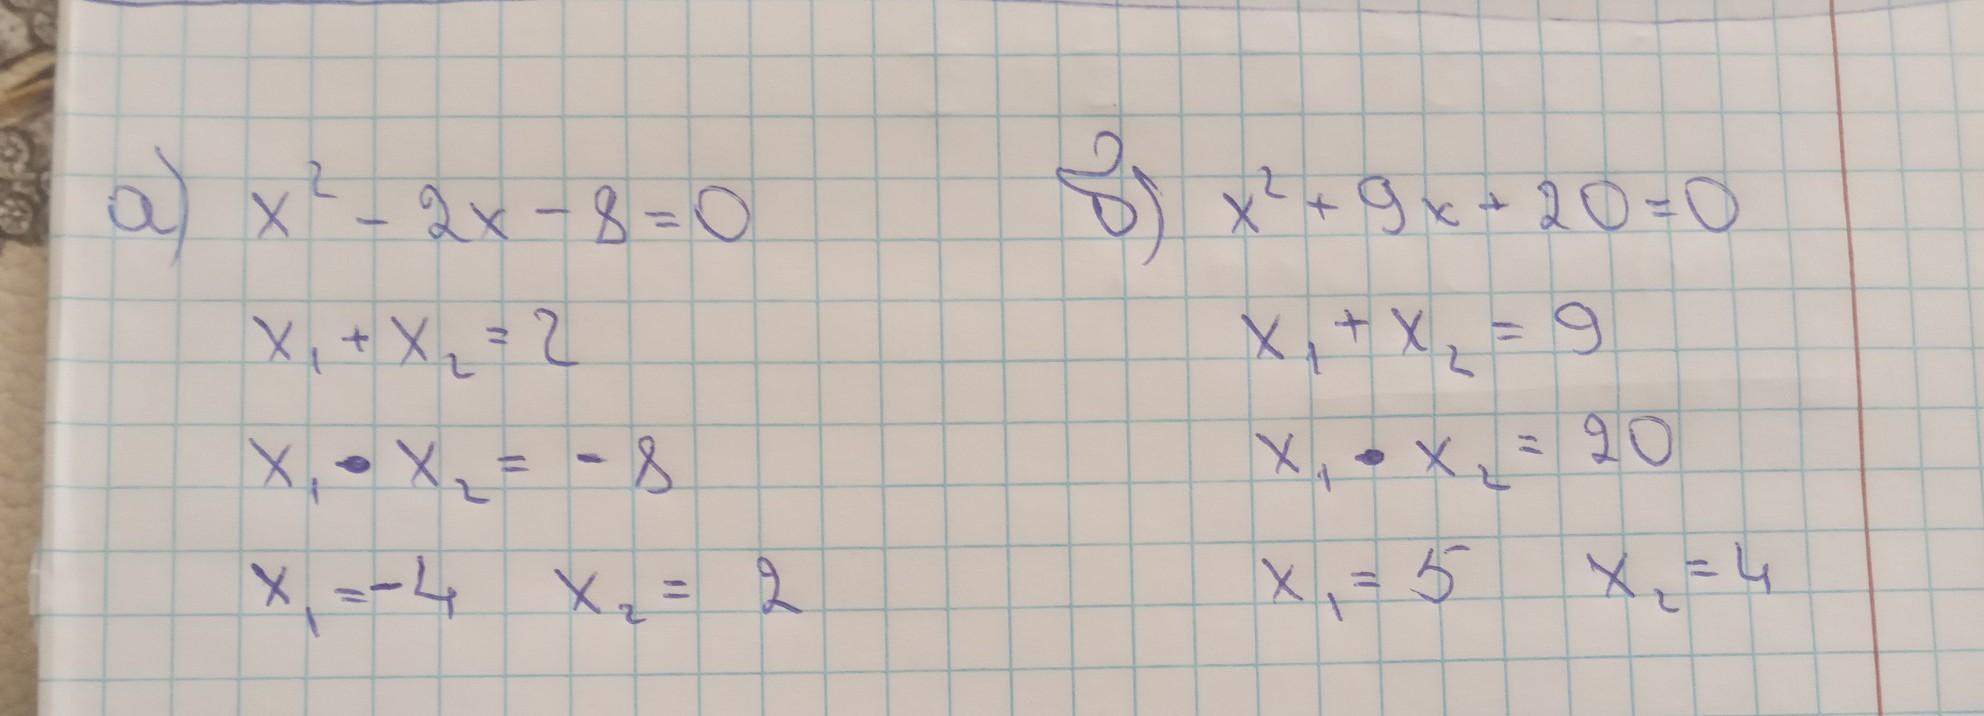 а) x² - 2x - 8 = 0
x₁ + x₂ = 2
x₁ • x₂ = - 8
x₁ = -4 x₂ = 2
б) x² + 9x + 20 = 0
x₁ + x₂ = 9
x₁ • x₂ = 20
x₁ = 5 x₂ = 4